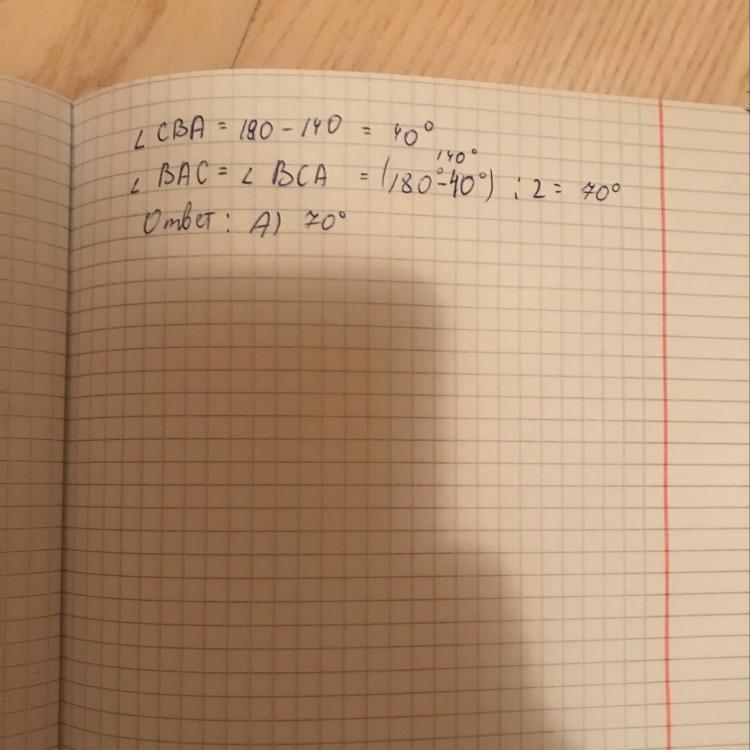 ∠ CBA = 180 - 140 = 40°
140°
∠ BAC = ∠ BCA = (180° - 40°) : 2 = 70°
Ответ: А) 70°